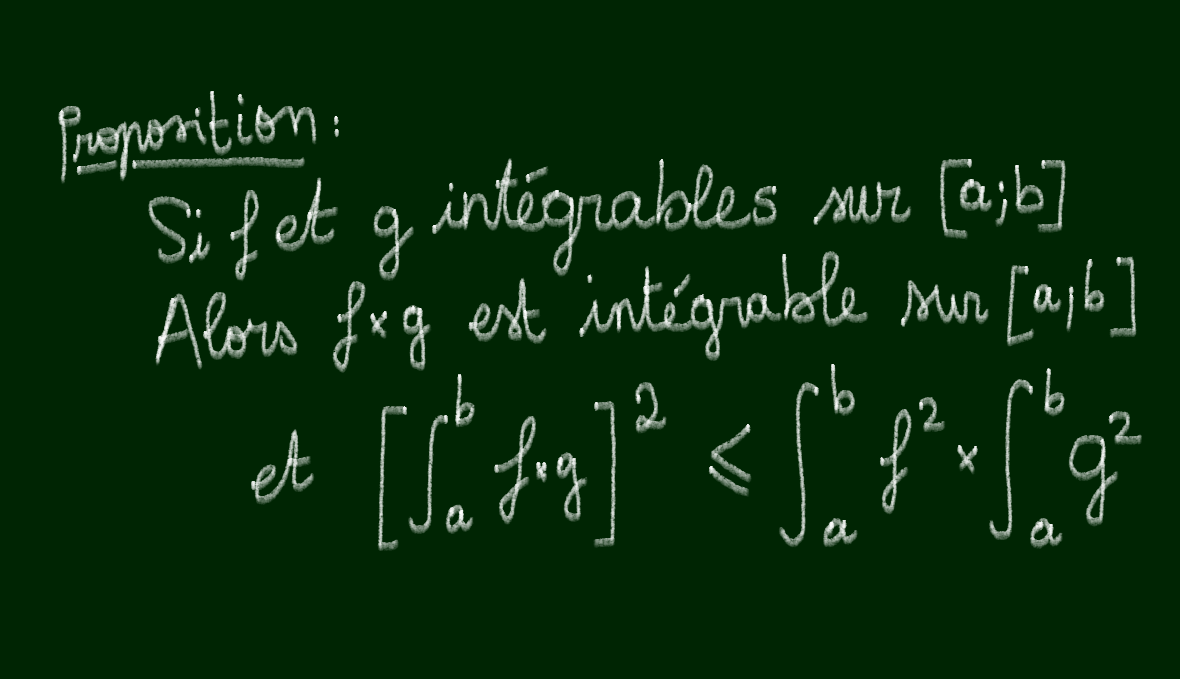 Proposition :
Si f et g intégrables sur [a;b]
Alors f×g est intégrable sur [a;b]
et [∫_a^b f×g]^2 ⩽ ∫_a^b f^2 × ∫_a^b g^2